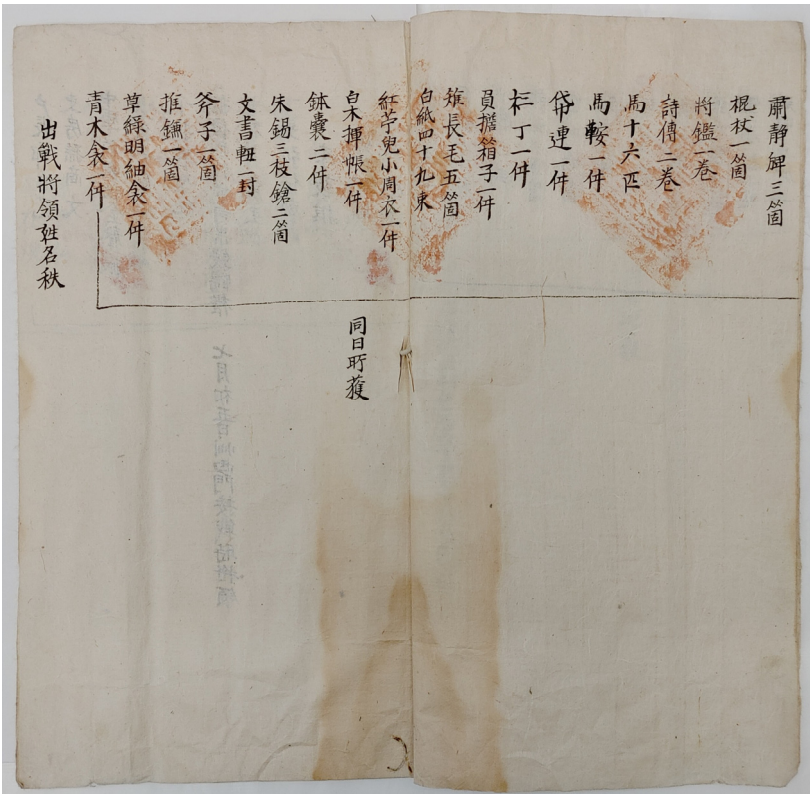 肅静牌三箇
棍杖一箇
將鑑一巻
詩傳二巻
馬十六匹
馬鞍一件
帒連一件
丁一件
員擔箱子一件
雉長毛五箇
白紙四十九束
紅苧兒小周衣一件
白木揮帳一件
鉢囊二件
朱錫三枝鎗二箇
文書軸一封
斧子一箇
推鎌一箇
草綠明紬衾一件
青木衾一件
同日所獲
出戰將領姓名秩